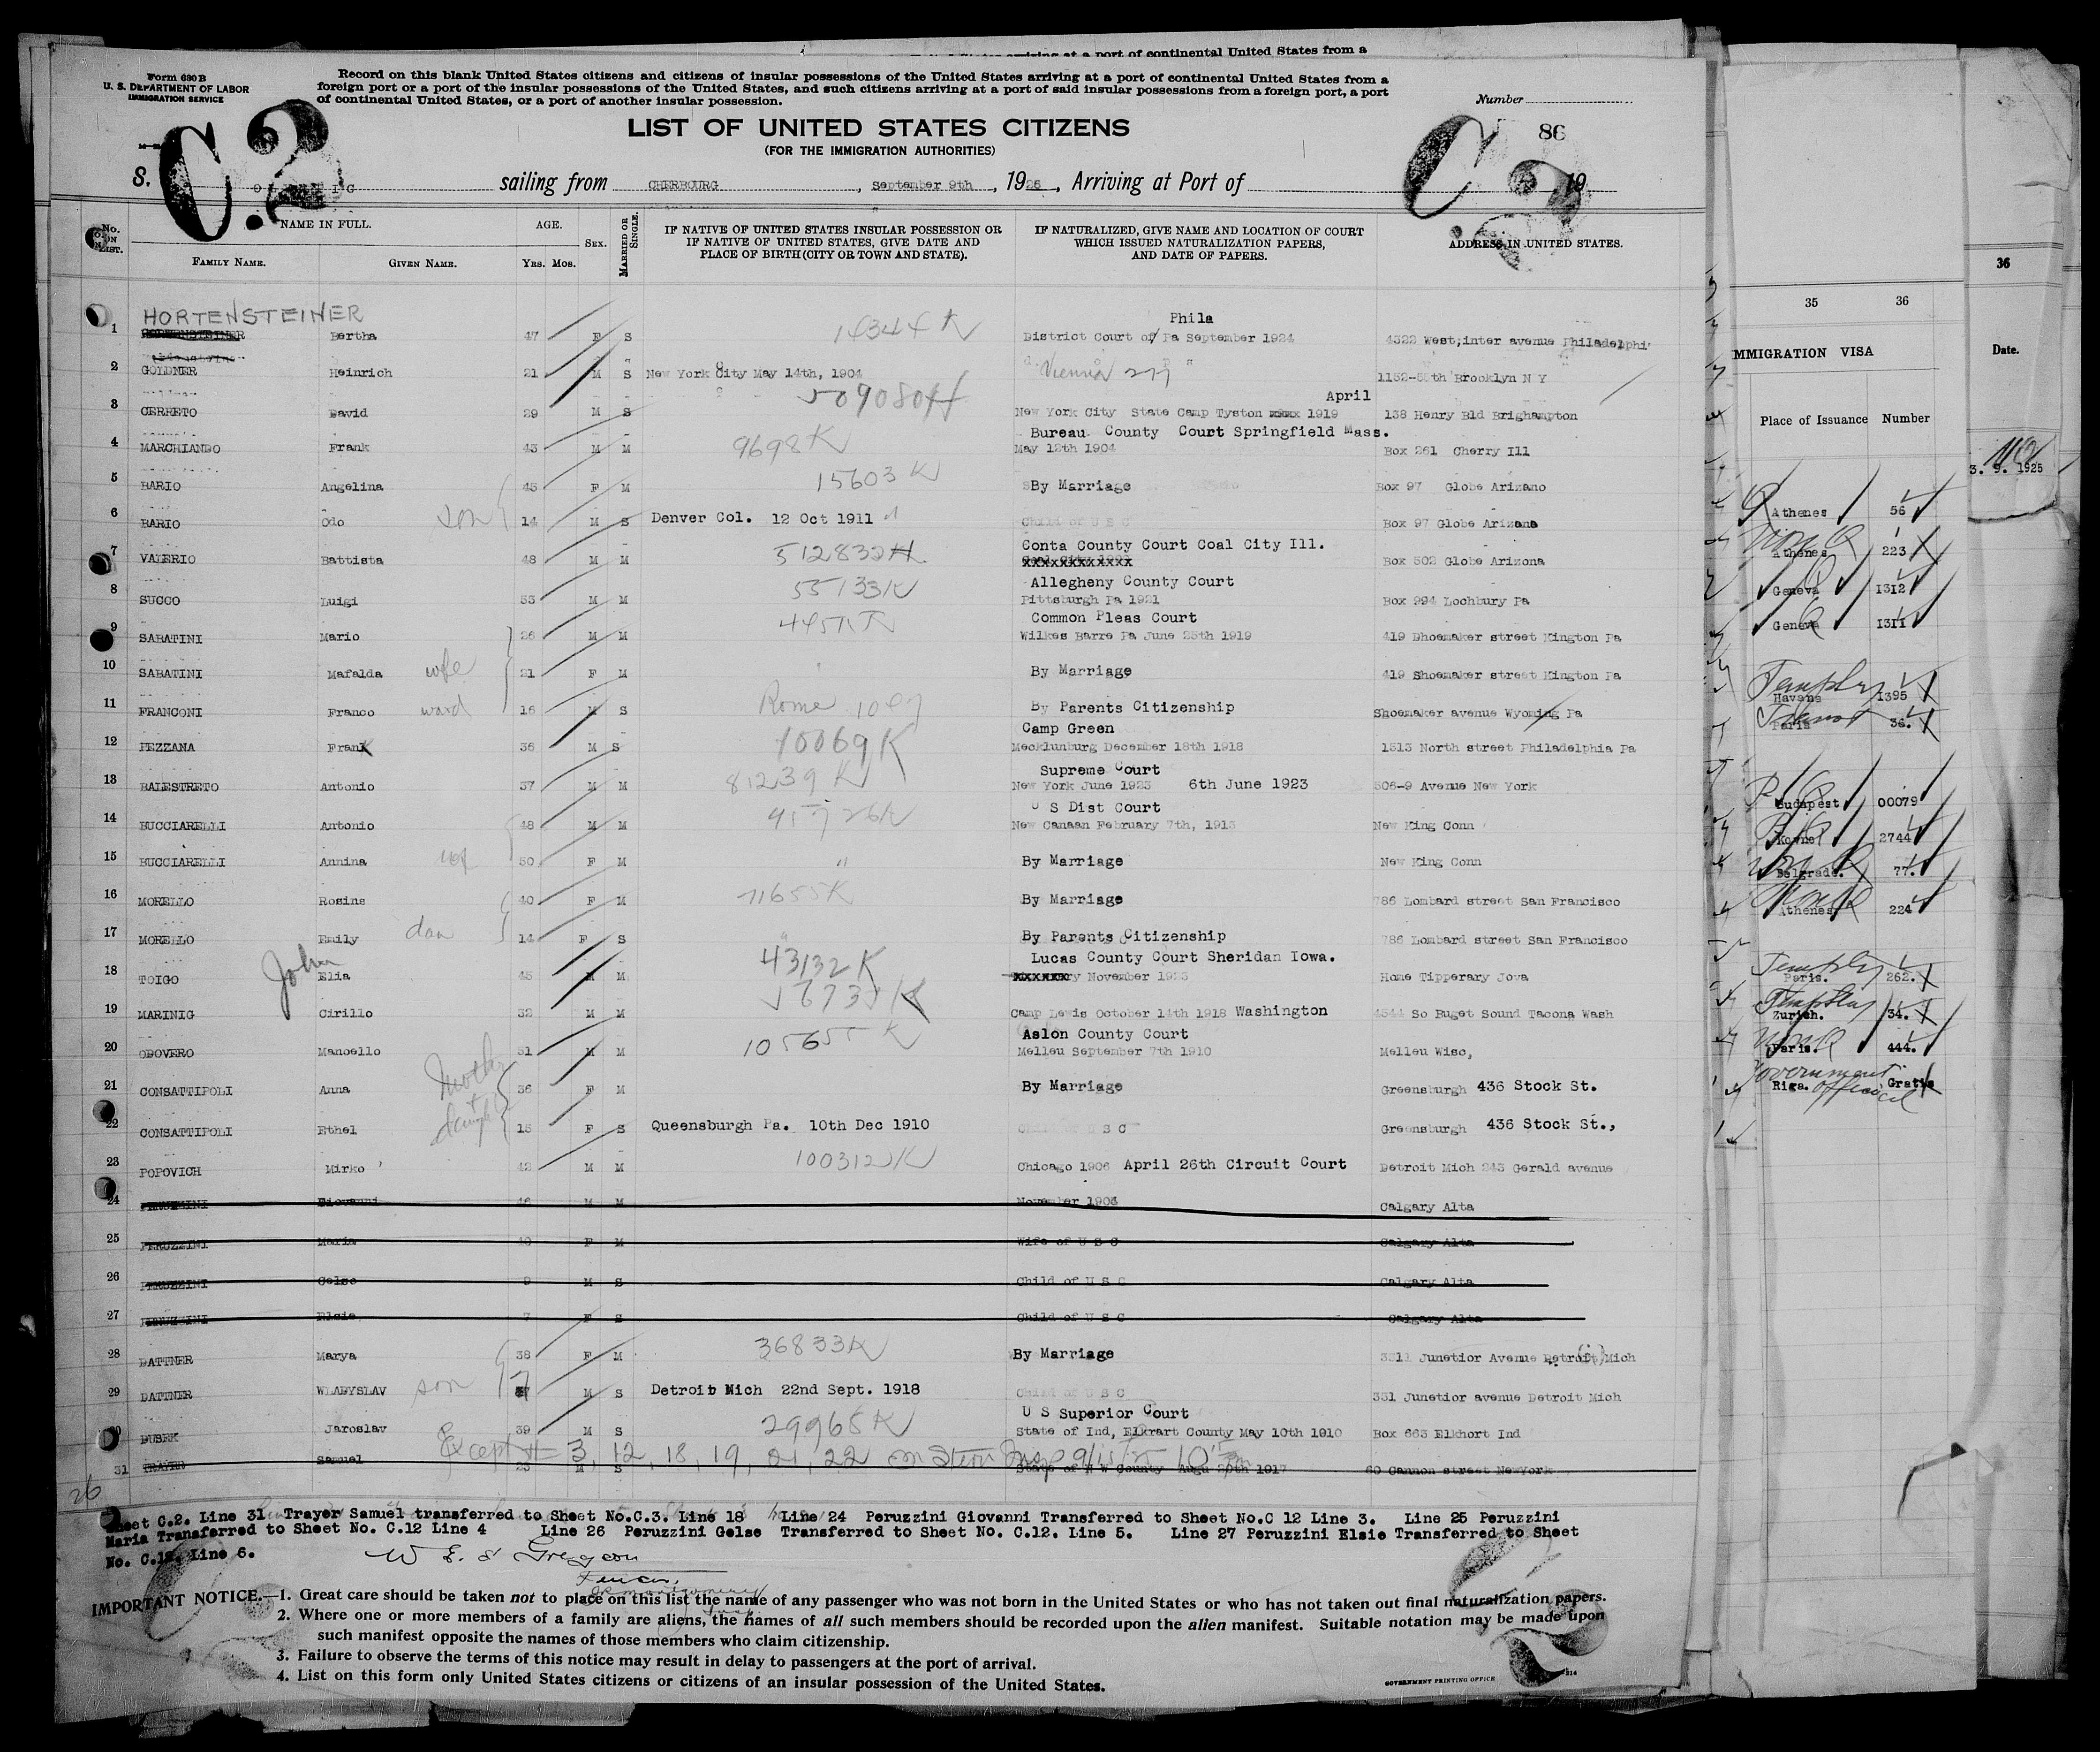 Form 630 B
U. S. DEPARTMENT OF LABOR
IMMIGRATION SERVICE
Record on this blank United States citizens and citizens of insular possessions of the United States arriving at a port of continental United States from a
foreign port or a port of the insular possessions of the United States, and such citizens arriving at a port of said insular possessions from a foreign port, a port
of continental United States, or a port of another insular possession.
Number
86
C.2
C 2
LIST OF UNITED STATES CITIZENS
(FOR THE IMMIGRATION AUTHORITIES)
S. sailing from CHERBOURG, September 9th, 1925, Arriving at Port of 19
No. ON LIST. NAME IN FULL. AGE. SEX. MARRIED OR SINGLE. IF NATIVE OF UNITED STATES INSULAR POSSESSION OR IF NATIVE OF UNITED STATES, GIVE DATE AND PLACE OF BIRTH (CITY OR TOWN AND STATE). IF NATURALIZED, GIVE NAME AND LOCATION OF COURT WHICH ISSUED NATURALIZATION PAPERS, AND DATE OF PAPERS. ADDRESS IN UNITED STATES.
FAMILY NAME. GIVEN NAME. YRS. MOS.
HORTENSTEINER Phila
1 Bertha 47 F S 14344 K District Court of Pa September 1924 4322 West;inter avenue Philadelphi
2 GOLDNER Heinrich 21 M S New York City May 14th, 1904 Vienna 277 1152-55th Brooklyn N Y
509080H April
3 CERRETO David 29 M S New York City State Camp Tyston xxxx 1919 138 Henry Bld Brighampton
Bureau County Court Springfield Mass.
4 MARCHIANDO Frank 43 M M 9698 K May 12th 1904 Box 261 Cherry Ill
5 BARIO Angelina 45 F M 15603 K By Marriage Box 97 Globe Arizano
6 BARIO Odo son 14 M S Denver Col. 12 Oct 1911 Child of U S C Box 97 Globe Arizana
Conta County Court Coal City Ill.
7 VALERIO Battista 48 M M 512832H xxxxxxxxxxxx Box 502 Globe Arizona
Allegheny County Court
8 SUCCO Luigi 53 M M 55133K Pittsburgh Pa 1921 Box 994 Lochbury Pa
Common Pleas Court
9 SABATINI Mario 26 M M Wilkes Barre Pa June 25th 1919 419 Shoemaker street Kington Pa
10 SABATINI Mafalda wife 21 F M By Marriage 419 Shoemaker street Kington Pa
11 FRANCONI Franco ward 16 M S Rome By Parents Citizenship Shoemaker avenue Wyoming Pa
Camp Green
12 PEZZANA Frank 36 M S 10069K Mecklunburg December 18th 1918 1513 North street Philadelphia Pa
Supreme Court
13 BALESTRETO Antonio 37 M M 81239 K New York June 1923 6th June 1923 506-9 Avenue New York
U S Dist Court
14 BUCCIARELLI Antonio 48 M M New Canaan February 7th, 1913 New King Conn
15 BUCCIARELLI Annina 50 F M " By Marriage New King Conn
16 MORELLO Rosina 40 F M 71655K By Marriage 786 Lombard street San Francisco
17 MORELLO Emily dau 14 F S By Parents Citizenship 786 Lombard street San Francisco
Lucas County Court Sheridan Iowa.
18 TOIGO John Elia 45 M M 43132 K xxxxxxxry November 1923 Home Tipperary Jova
19 MARINIG Cirillo 32 M M Camp Lewis October 14th 1918 Washington 4544 So Buget Sound Tacona Wash
Aslon County Court
20 ODOVERO Manoello 31 M M 105655 K Melleu September 7th 1910 Melleu Wisc,
21 CONSATTIPOLI Anna Mother 36 F M By Marriage Greensburgh 436 Stock St.
22 CONSATTIPOLI Ethel + daugh 15 F S Queensburgh Pa. 10th Dec 1910 Child of U S C Greensburgh 436 Stock St.,
23 POPOVICH Mirko 42 M M 100312K Chicago 1906 April 26th Circuit Court Detroit Mich 243 Gerald avenue
24 PERUZZINI Giovanni 46 M M November 1906 Calgary Alta
25 PERUZZINI Maria 40 F M Wife of U S C Calgary Alta
26 PERUZZINI Gelse 9 M S Child of U S C Calgary Alta
27 PERUZZINI Elsie 7 F S Child of U S C Calgary Alta
28 DATTNER Marya 38 F M 36833K By Marriage 3311 Junetior Avenue Detroit Mich
29 DATTNER WLADYSLAV son 7 M S Detroit Mich 22nd Sept. 1918 Child of U S C 331 Junetior avenue Detroit Mich
U S Superior Court
30 DUSEK Jaroslav 39 M S 29965K State of Ind, Elkrart County May 10th 1910 Box 663 Elkhort Ind
Except # 3, 12, 18, 19, 21, 22
31 TRAYER Samuel 23 M S State of N W County Augu 20th 1917 60 Cannon street NewYork
26
Sheet C.2. Line 31 Trayer Samuel transferred to Sheet No.C.3. Line 18 Line 24 Peruzzini Giovanni Transferred to Sheet No.C 12 Line 3. Line 25 Peruzzini
Maria Transferred to Sheet No. C.12 Line 4 Line 26 Peruzzini Gelse Transferred to Sheet No. C.12. Line 5. Line 27 Peruzzini Elsie Transferred to Sheet
No. C.12. Line 6.
IMPORTANT NOTICE.—1. Great care should be taken not to place on this list the name of any passenger who was not born in the United States or who has not taken out final naturalization papers.
2. Where one or more members of a family are aliens, the names of all such members should be recorded upon the alien manifest. Suitable notation may be made upon
such manifest opposite the names of those members who claim citizenship.
3. Failure to observe the terms of this notice may result in delay to passengers at the port of arrival.
4. List on this form only United States citizens or citizens of an insular possession of the United States.
GOVERNMENT PRINTING OFFICE
35 36
IMMIGRATION VISA
Place of Issuance Number
Athenes 56
Athenes 223
Geneva 1312
Geneva 1311
Havane 1395
Paris 36.
Budapest 00079
Kowno 2744
Belgrade. 77.
Athenes 224
Paris. 262.
Zurich. 34.
Paris. 444.
Government official
Riga. Gratis
36
Date.
3. 9. 1925